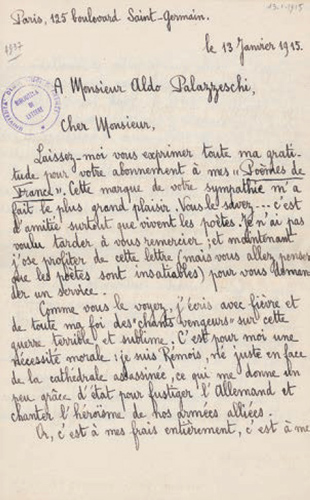 Paris, 125 boulevard Saint-Germain.
13-1-1915
le 13 Janvier 1915.
A Monsieur Aldo Palazzeschi,
Cher Monsieur,
Laissez-moi vous exprimer toute ma grati-
tude pour votre abonnement à mes "Poèmes de
France". Cette marque de votre sympathie m'a
fait le plus grand plaisir. Vous le savez... c'est
d'amitié surtout que vivent les poètes. Je n'ai pas
voulu tarder à vous remercier; et maintenant
j'ose profiter de cette lettre (mais vous allez penser
que les poètes sont insatiables) pour vous deman-
der un service..
Comme vous le voyez, j'écris avec fièvre et
de toute ma foi des "chants vengeurs" sur cette
guerre terrible et sublime. C'est pour moi une
nécessité morale: je suis Rémois, né juste en face
de la cathédrale assassinée, ce qui me donne un
peu grâce d'état pour fustiger l'Allemand et
chanter l'héroïsme de nos armées alliées.
Or, c'est à mes frais entièrement, c'est à me